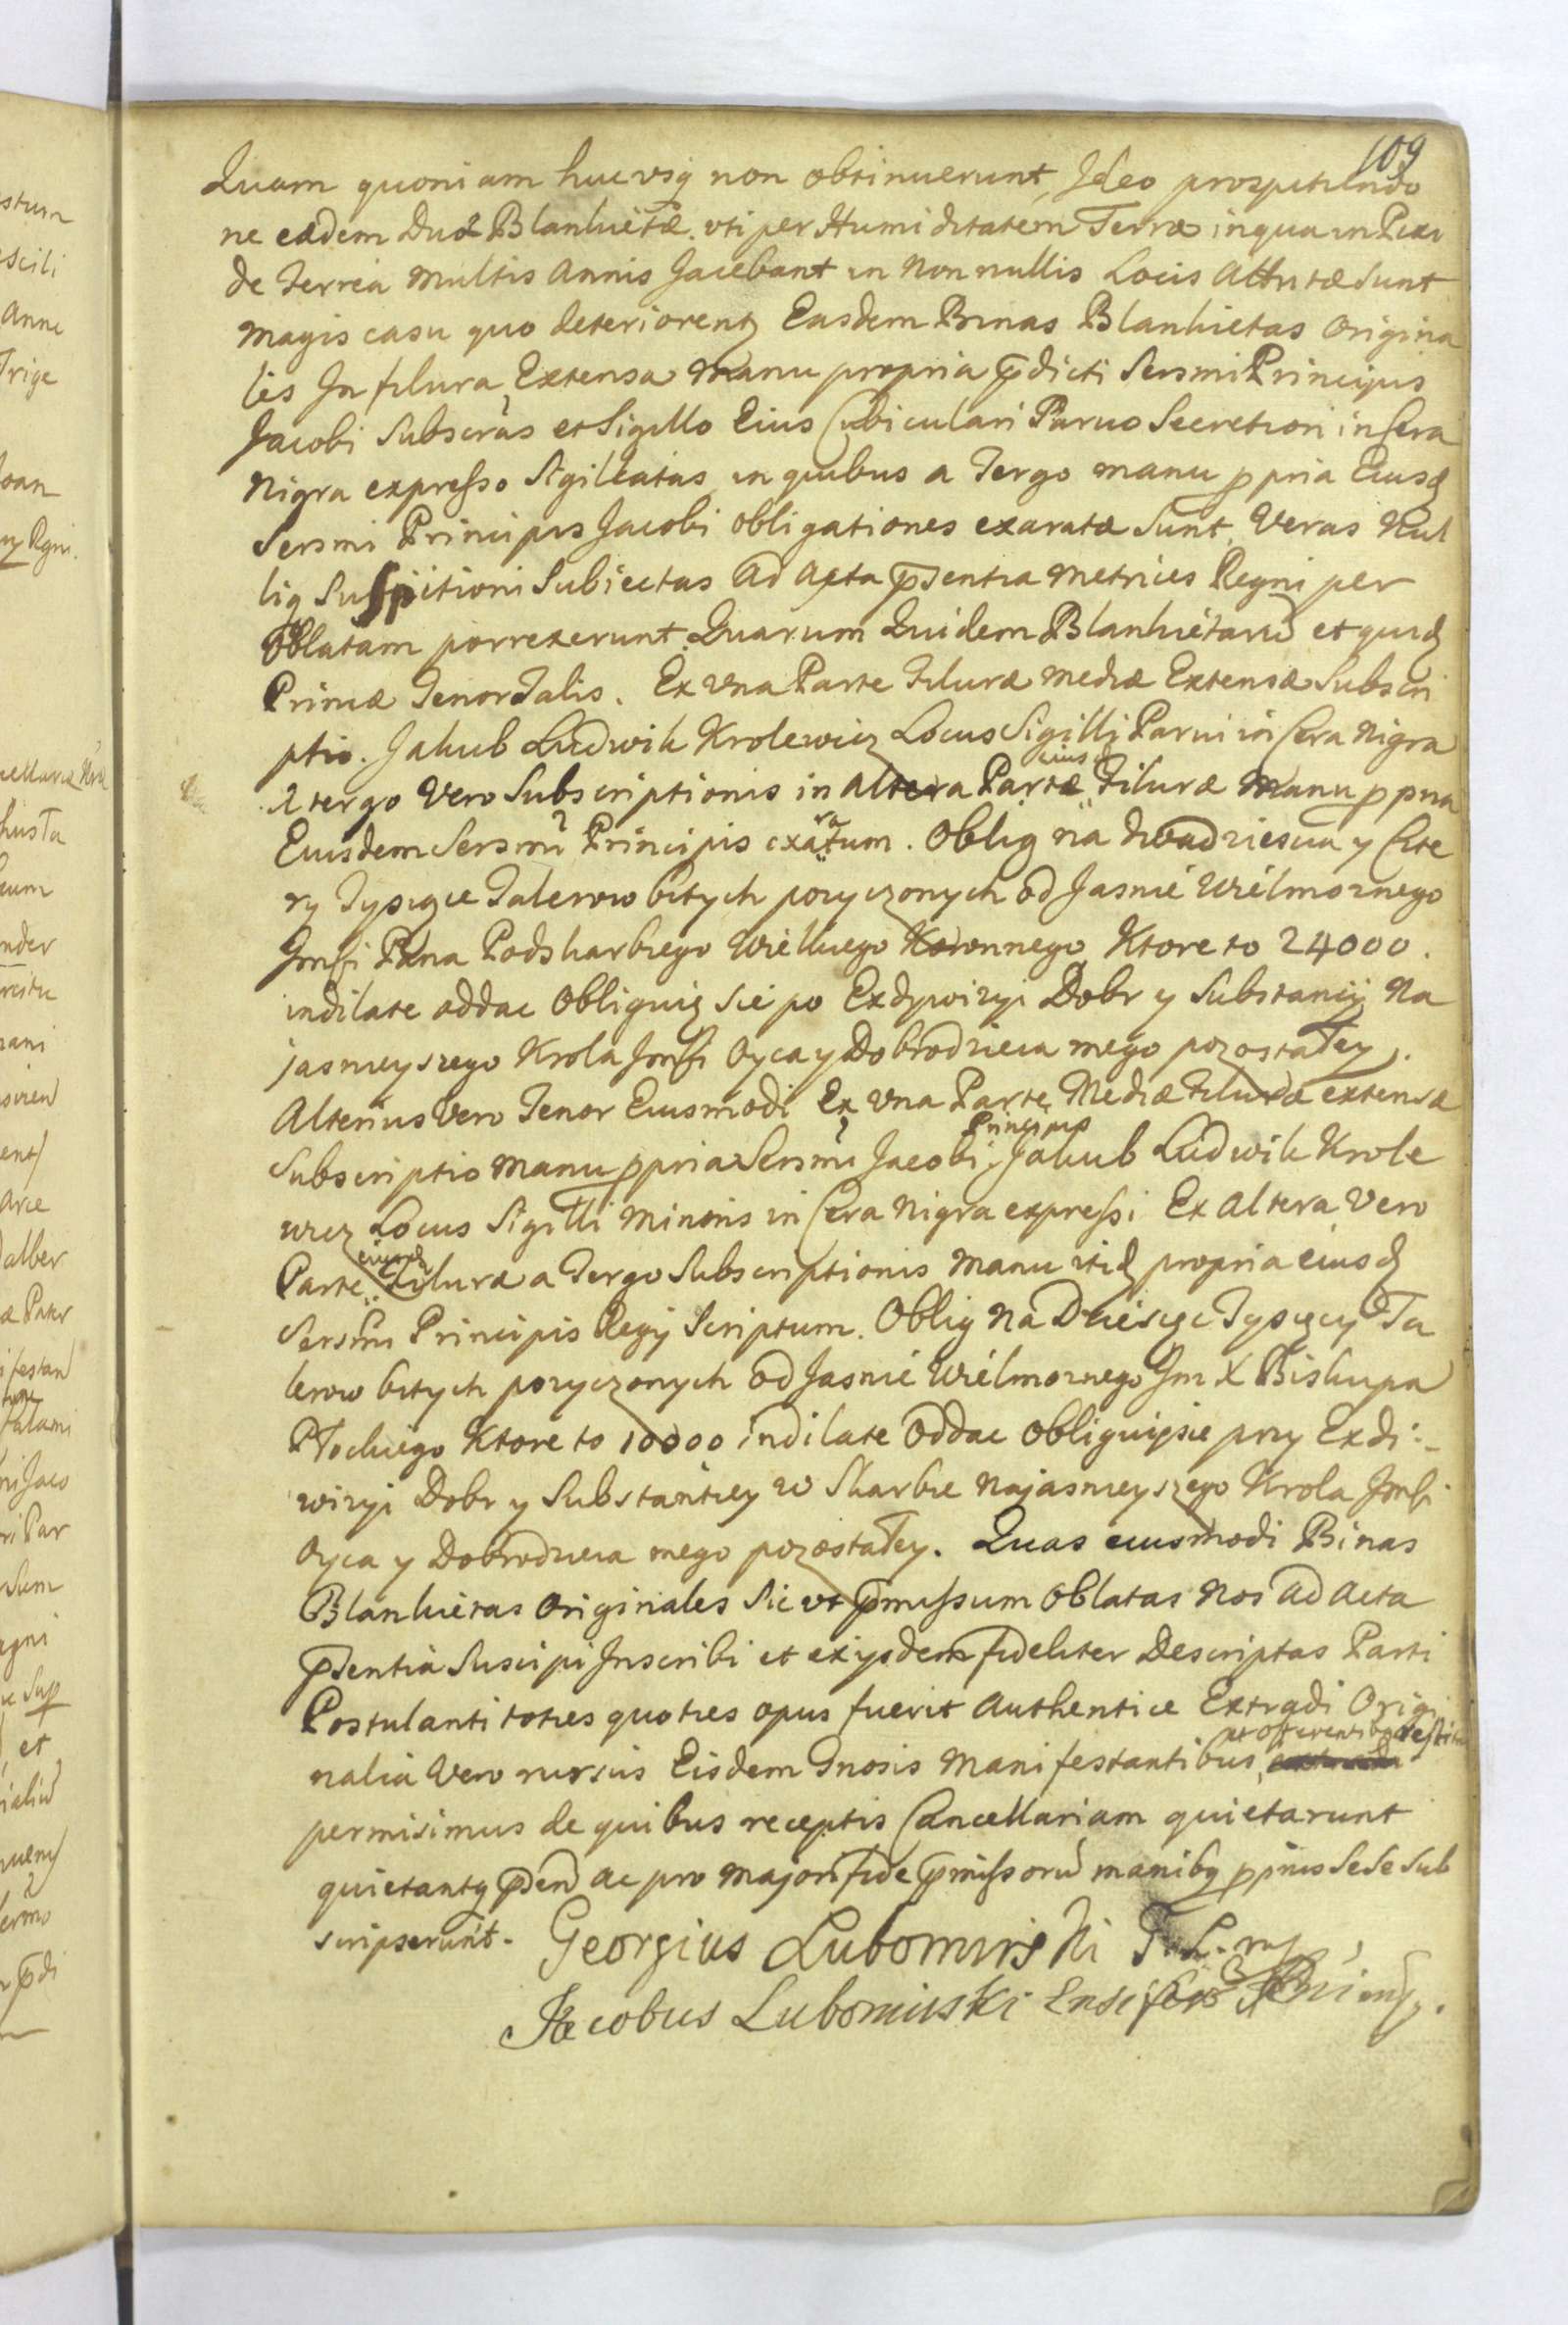 109
Quam quoniam hucvsq non obtinuerunt, Ideo prospiciendo
ne eædem Duæ Blankietæ vti per Humiditatem Terræ in qua in Pixi
de Terrea multis Annis Jacebant in Non nullis Locis Attritæ Sunt
magis casu quo deteriorent Easdem Binas Blankietas Origina
les In filura Extensa Manu propria p̄dicti Sersmi Principis
Jacobi Subscrās et Sigillo Eius Cubiculari Paruo Secretiori in Cera
Nigra expresso Sigillatas in quibus a Tergo manu p pria Eiusd
Sersmi Principis Jacobi obligationes exaratæ Sunt, Veras Nul
liq Suspitioni Subiectas Ad Acta p̄sentia Metrices Regni per
Oblatam porrexerunt. Quarum Quidem Blankietarū et quid
Primæ Tenor Talis. Ex vna Parte Filuræ mediæ Extensæ Subscri
ptio. Jakub Ludwik Krolewicz Locus Sigilli Parui in Cera Nigra
A tergo Vero Subscriptionis in Altera Partæ eiusd Filuræ Manu p pria
Eiusdem Sersmi Principis exaratum. Oblig na dwadziescia y Czte
ry Tysiące Talerow bitych pozyczonych od Jasnie Wielmoznego
Jmsci Pana Podskarbiego Wielkiego Koronnego, Ktore to 24000.
indilate oddac Obliguię sie po Exdywizyi Dobr y Substancij Na
jasnieyszego Krola Jmsci Oyca y Dobrodzieia mego pozostałey.
Alterius Vero Tenor Eiusmodi Ex vna Parte Mediæ Filuræ extensæ
Subscriptio Manu ppria Sersmi Jacobi Principis Jakub Ludwik Krole
wicz Locus Sigilli Minoris in Cera Nigra expressi Ex Altera Vero
Parte eiusd Filuræ a Tergo Subscriptionis Manu itid propria eiusd
Sersmi Principis Regij Scriptum. Oblig Na Dziesięc Tysięcy Ta
lerow bitych pozyczonych od Jasnie Wielmoznego Jm X Biskupa
Płockiego Ktore to 10000 indilate Oddac obliguię sie przy Exdi:
wizyi Dobr y Substantiey w Skarbie Najasnieyszego Krola Jmsci
Oyca y Dobrodzieia mego pozostałey. Quas eiusmodi Binas
Blankietas Originales Sic vt p̄missum Oblatas Nos Ad Acta
p̄sentia Suscipi Inscribi et ex ijsdem fideliter Descriptas Parti
Postulanti toties quoties opus fuerit Authentice Extradi Origi
nalia Vero rursus Eisdem Gnosis Manifestantibus, et Offerentibq restitui
permisimus de quibus receptis Cancellariam quietarunt
quietantq p̄sen ac pro majori fide p̄missorū manibq p prius Sese Sub
scripserunt. Georgius Lubomirski
Jacobus Lubomirski Ensifer mp.